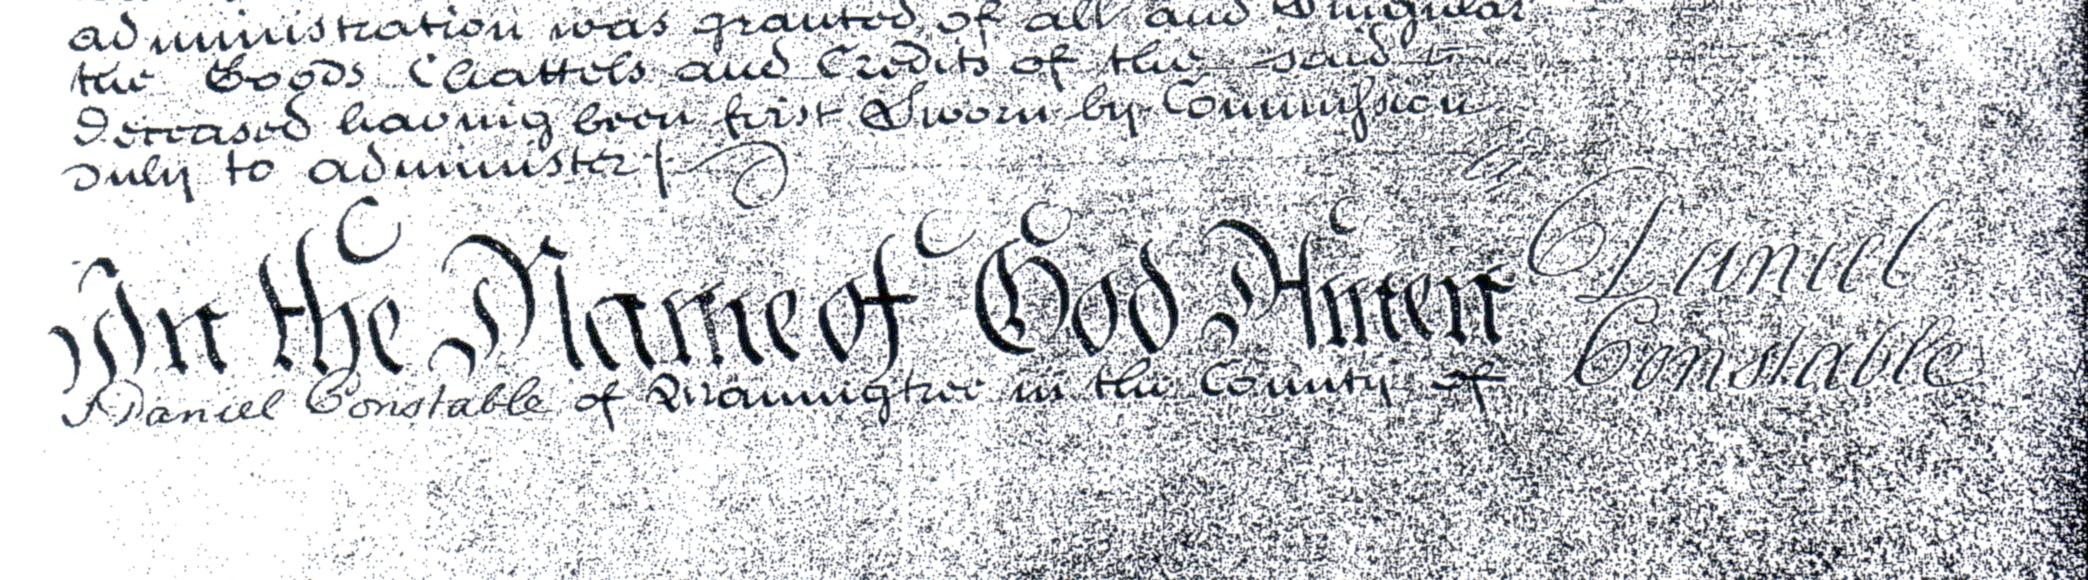 administration was granted of all and Singular
the Goods Chattels and Credits of the said
deceased having been first Sworn by Commission
duly to administer
In the Name of God Amen
Daniel
Constable
I Daniel Constable of Manningtree in the County of